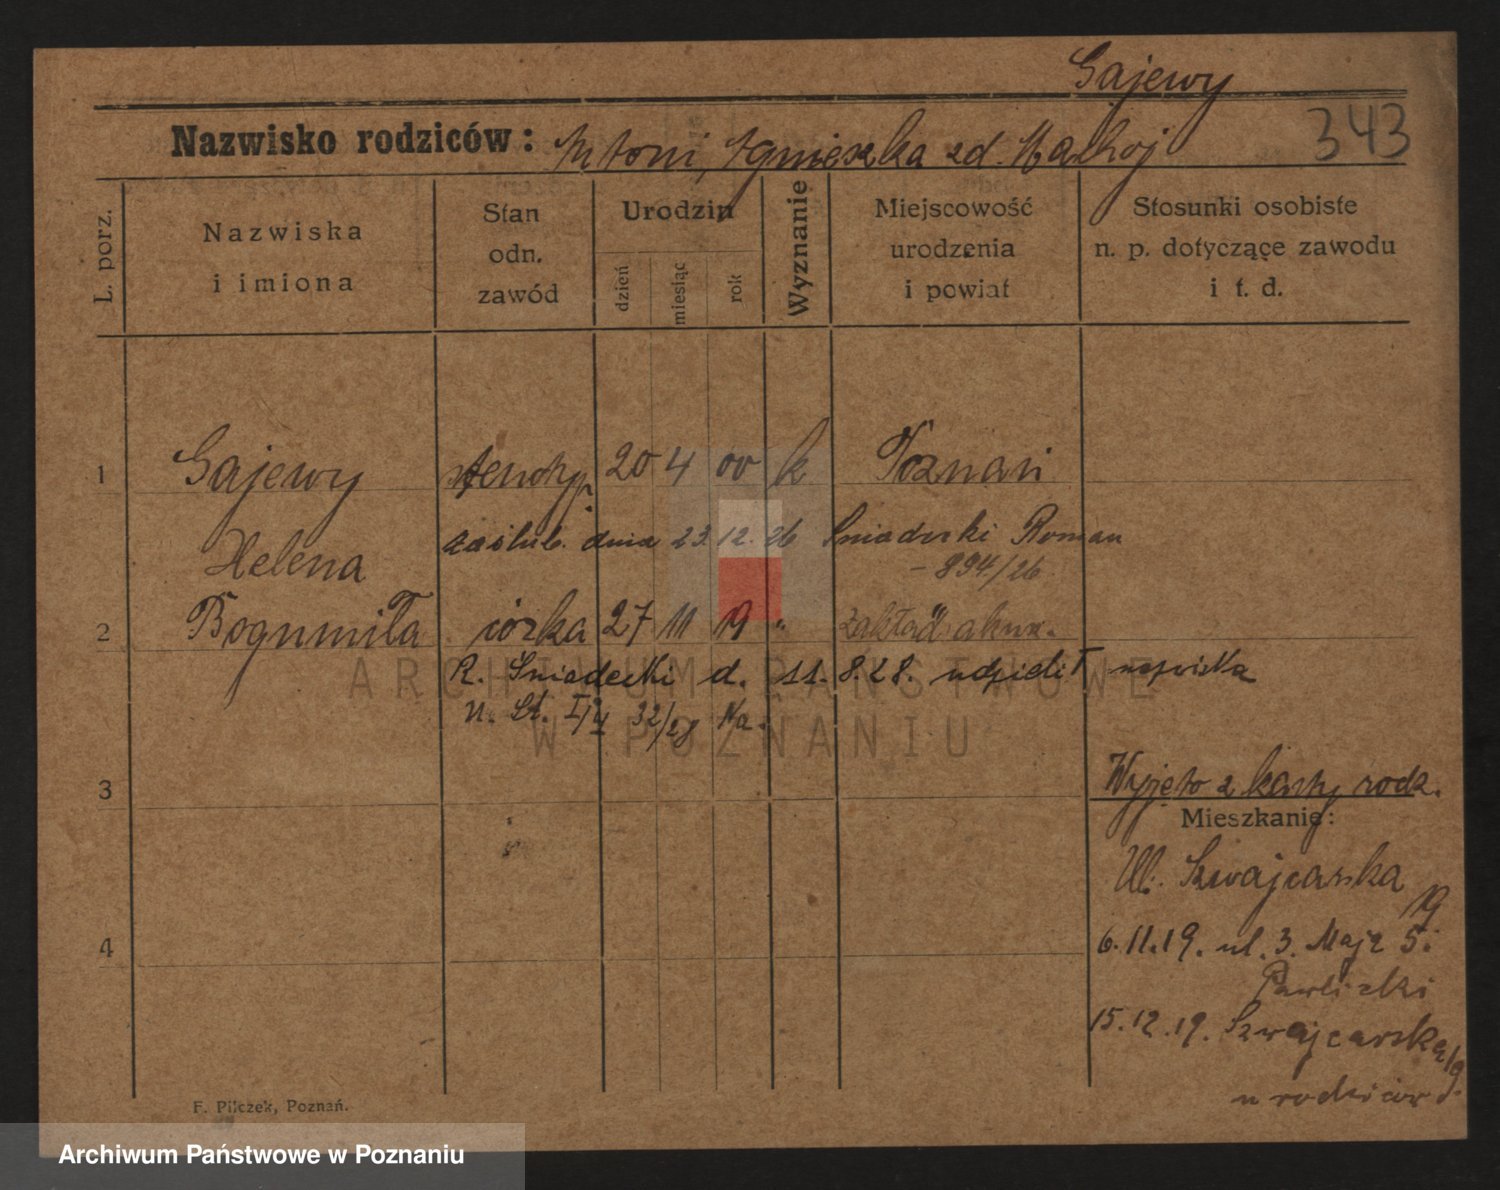 Gajewy
343
Nazwisko rodziców: Antoni, Agnieszka zd. Małvoj
L. porz.
Nazwiska i imiona
Stan odn. zawód
Urodzin
dzień
miesiąc
rok
Wyznanie
Miejscowość urodzenia i powiat
Stosunki osobiste n. p. dotyczące zawodu i t. d.
1 Gajewy stenotyp. 20 4 00 k Poznań
zaślub. dnia 23.12.26 Śniadecki Roman
Helena
- 894/26
2 Bogumiła córka 27 11 19 " zakład akusz.
R. Śniadecki d. 11.8.28. udzielił nazwiska
U. St. 32/28
3
Wyjęto z karty rodz.
Mieszkanie:
Ul. Szwajcarska 19
4
6.11.19. ul. 3. Maja 5.
Pawlicki
15.12.19. Szwajcarska 19
u rodziców
F. Pilczek, Poznań.
ARCHIWUM PAŃSTWOWE
W POZNANIU
Archiwum Państwowe w Poznaniu